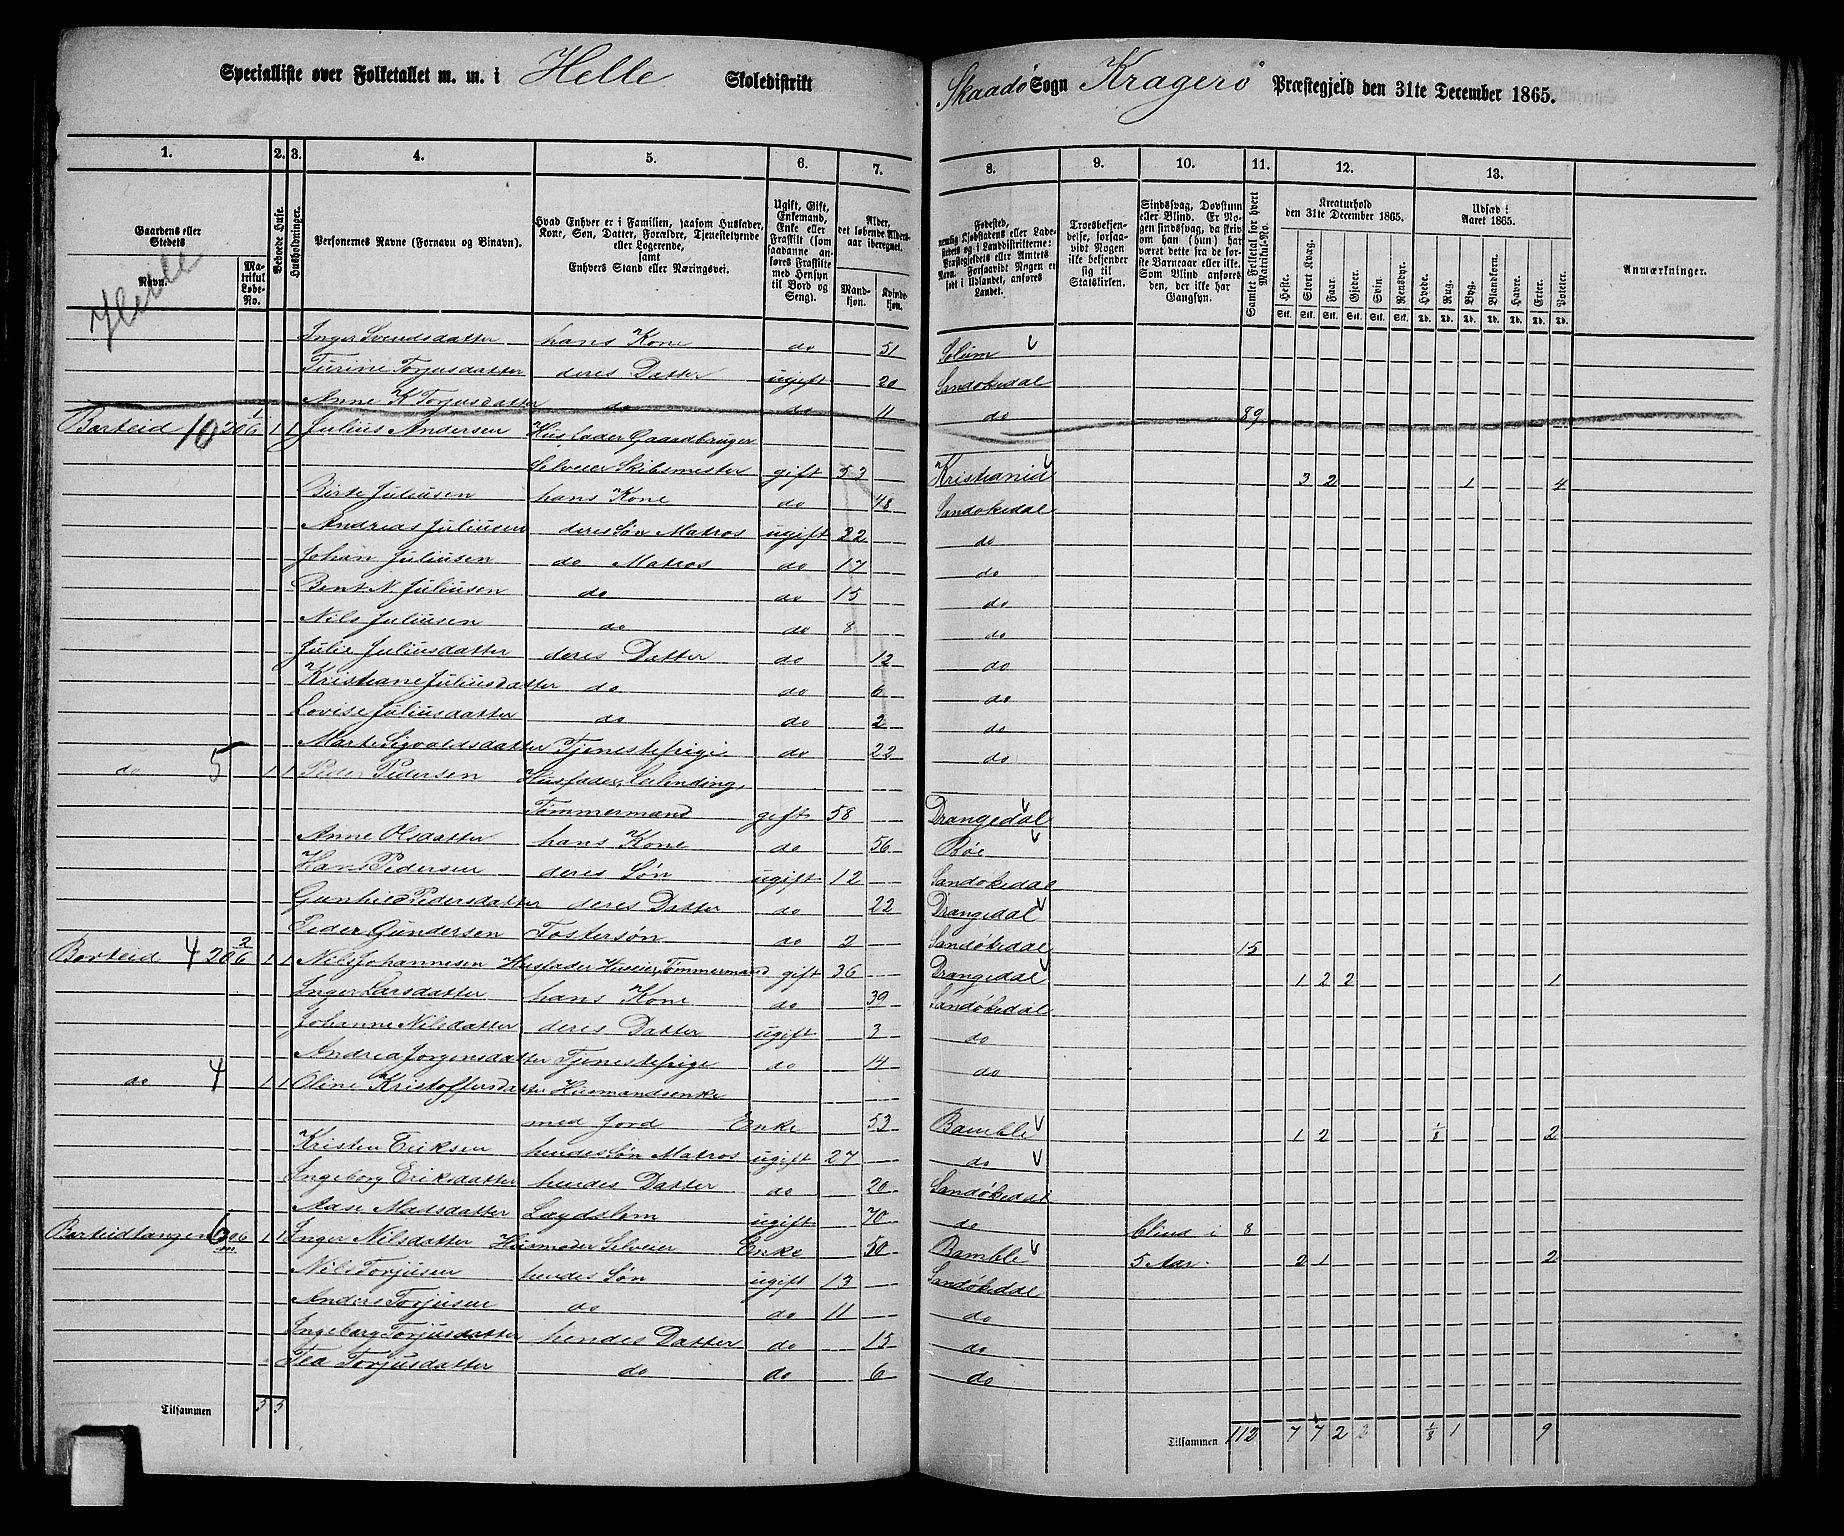 Specialliste over Folketallet m. m. i Helle Skoledistrikt Skaadø Sogn Kragerø Præstegjeld den 31te December 1865.
1. 2. 3. 4. 5. 6. 7. 8. 9. 10. 11. 12. 13.
Gaardens eller Stedets Navn. Matrikul Løbe-No. Beboede Huse. Husholdninger. Personernes Navne (Fornavn og Binavn). Hvad Enhver er i Familien, saasom Husfader, Kone, Søn, Datter, Forældre, Tjenestetyende eller Logerende, samt Enhvers Stand eller Næringsvei. Ugift, Gift, Enkemand, Enke eller Fraskilt (som saadanne anføres Fraskilte med Hensyn til Bord og Seng). Alder, det løbende Aldersaar iberegnet. Mandkjøn. Kvindekjøn.
Fødested, Troesbekjendelse, forsaavidt Nogen ikke bekjender sig til Statskirken. Sindssvag, Døvstum eller Blind. Er Nogen sindssvag, da skriv om han (hun) har været dette fra de første Barneaar eller ikke. Som Blind anføres den, der ikke har Gangsyn. Samlet Folketal for hvert Matrikul-No. Kreaturhold den 31te December 1865. Udsæd i Aaret 1865. Anmærkninger.
Heste. Stort Kvæg. Faar. Gjeder. Svin. Rensdyr. Hvede. Rug. Byg. Blandkorn. Havre. Erter. Poteter.
Inger Svendsdatter hans Kone do 51 Solum
Turine Torjusdatter deres Datter ugift 20 Sandøkedal
Anne K Torjusdatter do do 11 do 89
Barteid 10 206 1 1 1 Julius Andersen Husfader Gaardbruger
Selveier Skibsmester gift 53 Kristiania 3 2 1 4
Birte Juliusen hans Kone do 48 Sandøkedal
Andreas Juliusen deres Søn Matros ugift 22 do
Johan Juliusen do Matros do 17 do
Bent N Juliusen do do 15 do
Nils Juliusen do do 8 do
Julie Juliusdatter deres Datter do 12 do
Kristiane Juliusdatter do do 6 do
Lovise Juliusdatter do do 2 do
Marte Sigvaldsdatter Tjenestepige do 22 do
do 5 1 1 Peder Pedersen Husfader, Leilending,
Tømmermand gift 58 Drangedal
Anne Olsdatter hans Kone do 56 Røe
Hans Pedersen deres Søn ugift 12 Sandøkedal
Gunhild Pedersdatter deres Datter do 22 Drangedal
Peder Gundersen Fostersøn do 2 Sandøkedal 15
Barteid 4 206 2 1 1 Nils Johannesen Husfader Huseier Tømmermand gift 36 Drangedal 1 2 2 1
Inger Larsdatter hans Kone do 39 Sandøkedal
Johanne Nilsdatter deres Datter ugift 3 do
Andrea Jorgensdatter Tjenestepige do 14 do
do 4 1 1 Oline Kristoffersdatter Husmandsenke
med Jord Enke 53 Bamble 1 2 1/8 2
Kristen Eriksen hendes Søn Matros ugift 27 do
Ingeborg Eriksdatter hendes Datter do 20 Sandøkedal
Aase Madsdatter Lægdslem ugift 70 do blind i 8
Barteidtangen 6 206 1 1 Inger Nilsdatter Husmoder Selveier Enke 50 Bamble 5 Aar 2 1 2
Nils Torjusen hendes Søn ugift 13 Sandøkedal
Anders Torjusen do do 11 do
Ingeborg Torjusdatter hendes Datter do 15 do
Tea Torjusdatter do do 6 do
Tilsammen 5 5 Tilsammen 112 7 7 2 2 1/8 1 9